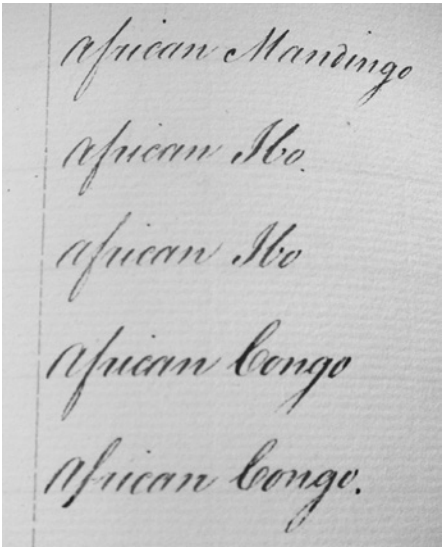 African Mandingo
African Ibo.
African Ibo
African Congo
African Congo.